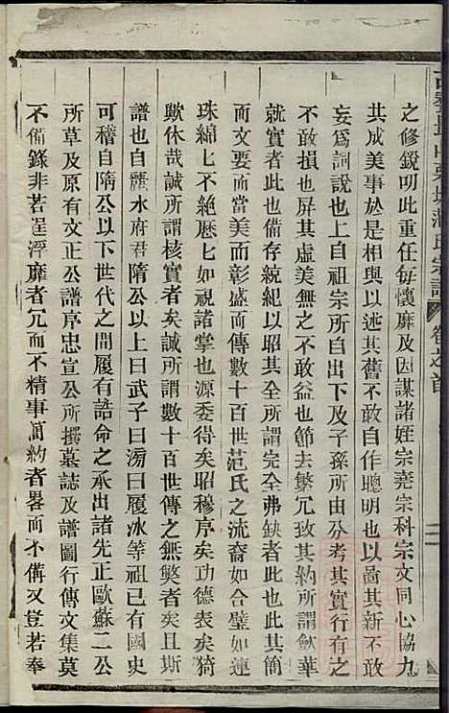 之修鋭明此重任每懷靡及因謀諸姪宗堯宗科宗文同心協力
共成美事於是相與以述其舊不敢自作聰明也以啚其新不敢
妄爲詞說也上自祖宗所自出下及子孫所由分考其實行有之
不敢損也屏其虛美無之不敢益也節去繁冗致其納所謂歛華
就實者此也備存統紀以昭其全所謂完全弗缺者此也其簡
而文要而當美而彰盛而傳數十百世范氏之流裔如合璧如連
珠綿七不絶歷七如視諸掌也源委得矣昭穆序矣功德表矣猗
歟休哉誠所謂核實者矣誠所謂數十百世傳之無斁者矣且斯
譜也自麗水府君隋公以上曰武子曰滂曰履冰等祖已有國史
可稽自隋公以下世代之間履有誥命之承出諸先正歐蘇二公
所草及原有文正公譜序忠宣公所撰墓誌及譜圖行傳文集莫
不備錄非若逞浮靡者冗而不精事萵約者畧而不備又豈若奉
氏宗譜
卷之首